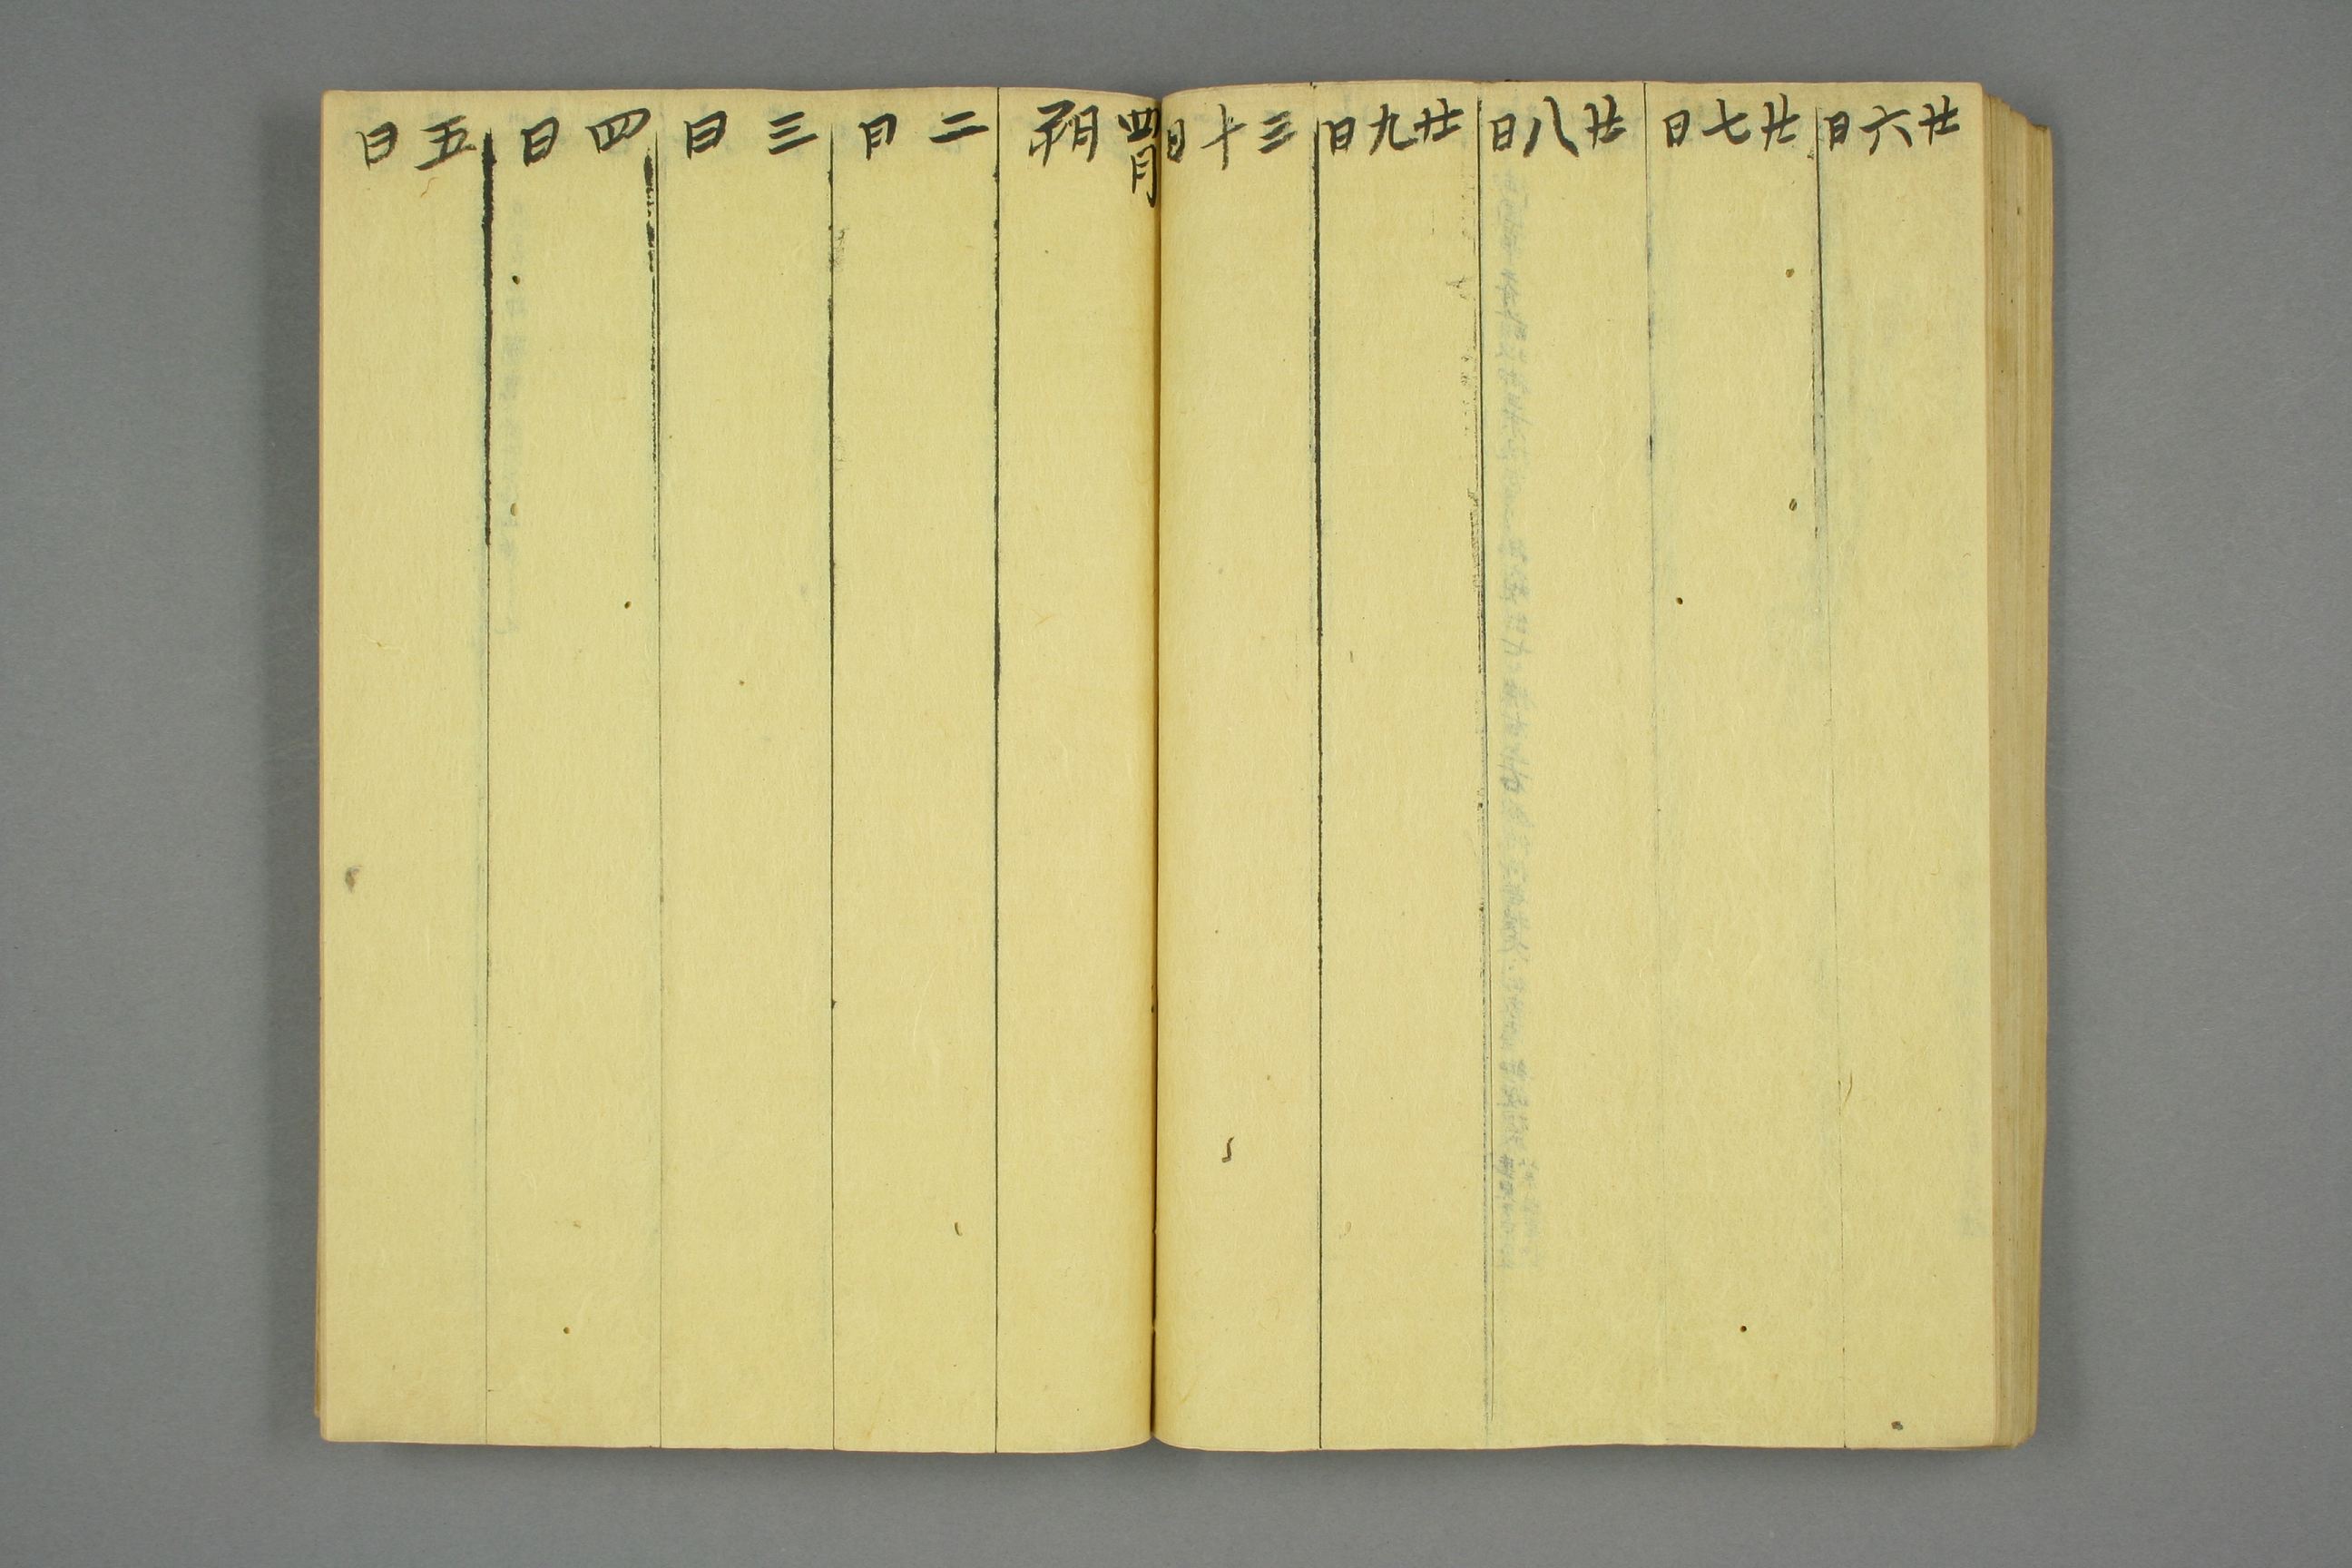 廿六日
廿七日
廿八日
廿九日
三十日
四月朔
二日
三日
四日
五日